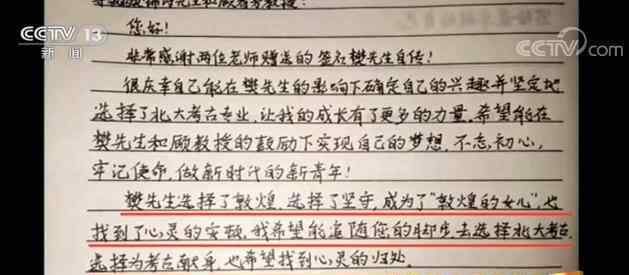 CCTV 13
新闻
CCTV.com
先生和顾春芳教授：
您好！
非常感谢两位老师赠送的签名樊先生自传！
很庆幸自己能在樊先生的影响下确定自己的兴趣并坚定地
选择了北大考古专业，让我的成长有了更多的力量，希望能在
樊先生和顾教授的鼓励下实现自己的梦想，不忘初心，
牢记使命，做新时代的新青年！
樊先生选择了敦煌，选择了坚守，成为了“敦煌的女儿”，也
找到了心灵的安顿，我希望能追随您的脚步去选择北大考古，
选择为考古献身，也希望找到心灵的归处。